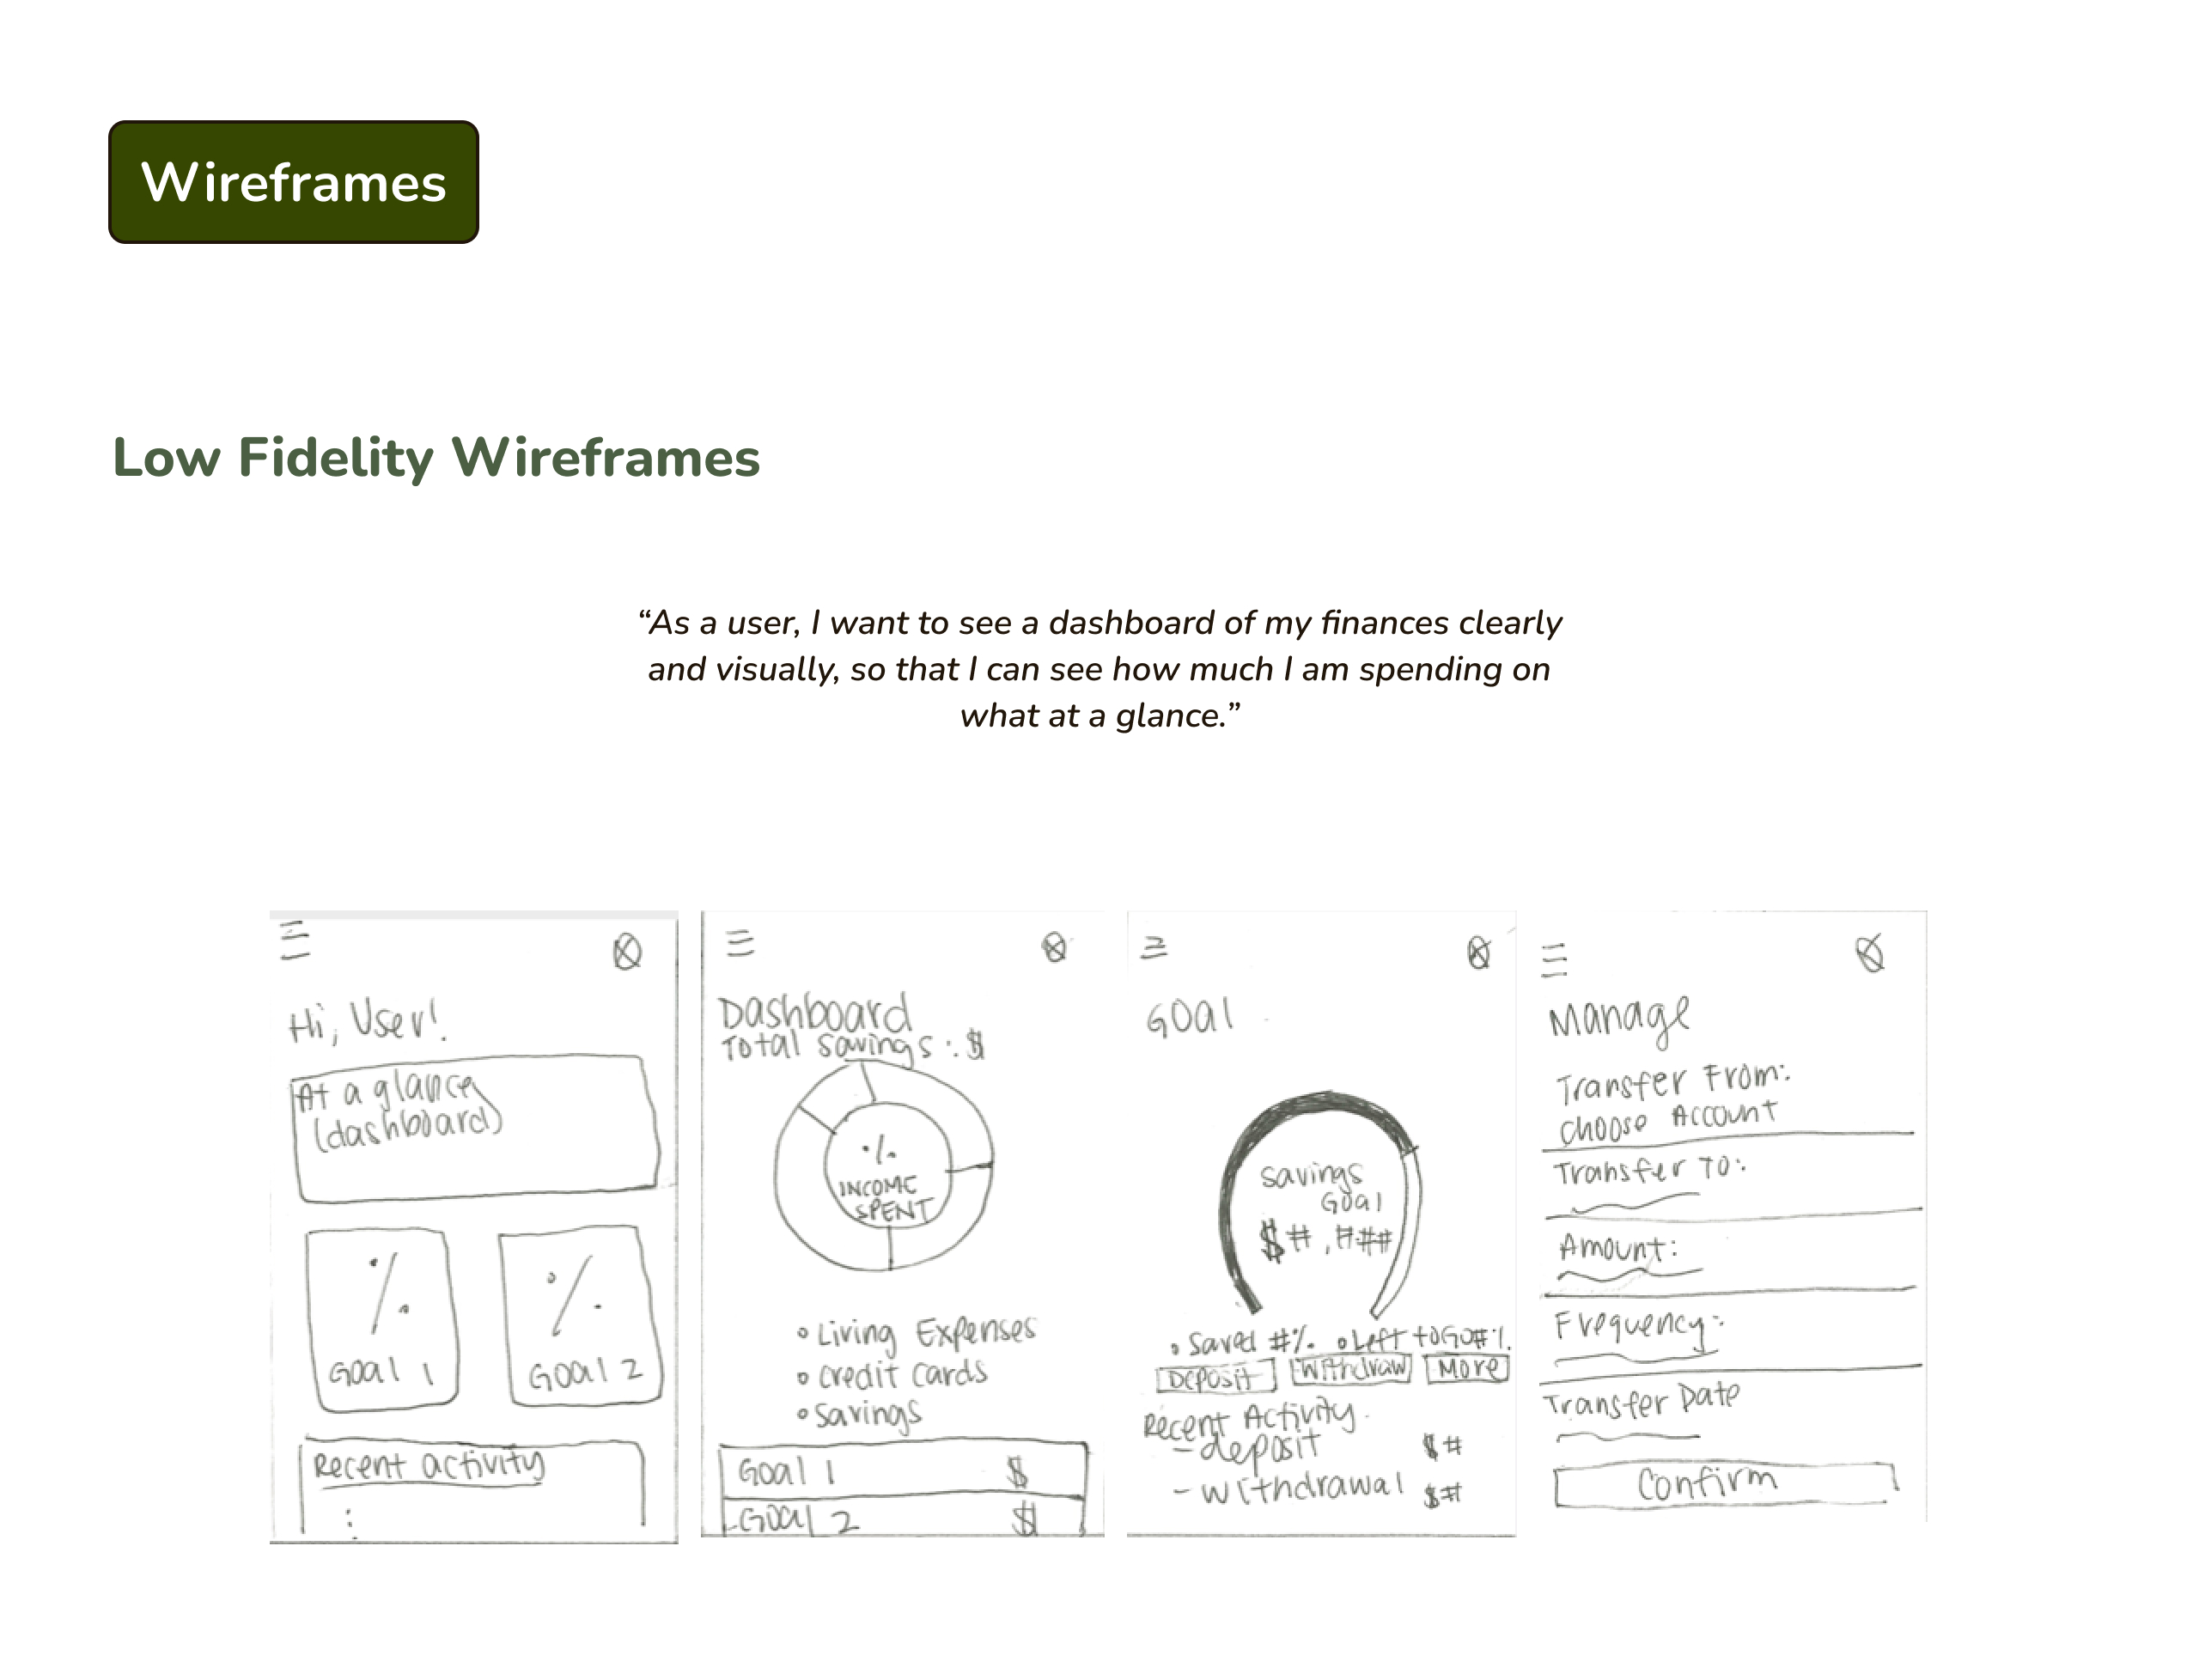 Wireframes
Low Fidelity Wireframes
“As a user, I want to see a dashboard of my finances clearly
and visually, so that I can see how much I am spending on
what at a glance.”
Hi, User!
At a glance
(dashboard)
%
Goal 1
%
Goal 2
Recent activity
Dashboard
Total savings: $
%
INCOME
SPENT
Living Expenses
Credit Cards
Savings
Goal 1 $
Goal 2 $
Goal
Savings
Goal
$#,###
Saved #% Left to Go #%
Deposit Withdraw More
Recent Activity
- deposit $#
- Withdrawal $#
Manage
Transfer From:
Choose Account
Transfer To:
Amount:
Frequency:
Transfer Date
Confirm